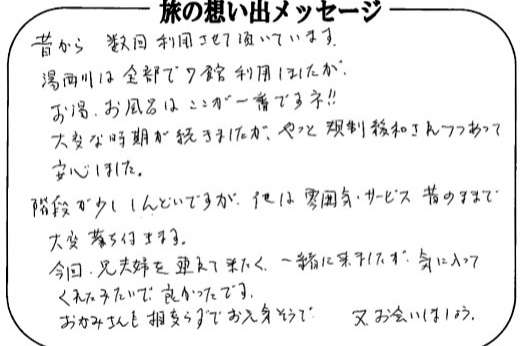 旅の想い出メッセージ
昔から 数回利用させて頂いています。
湯西川は全部で7館利用しましたが、
お湯、お風呂はここが一番ですネ!!
大変な時期が続きましたが、やっと規制緩和されつつあって
安心しました。
階段が少ししんどいですが、他は雰囲気・サービス昔のままで
大変落ち付きます。
今回、兄夫婦を連れて来たく、一緒に来ましたが、気に入って
くれたみたいで良かったです。
おかみさんも相変らずでお元気そうで、 又お会いしましょう。